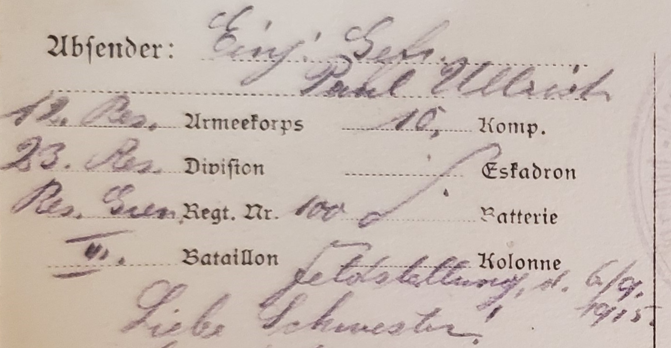 Absender: Einj. Gefr.
Paul Ullrich
12. Res. Armeekorps 10. Komp.
23. Res. Division Eskadron
Res. Gren. Regt. Nr. 100 Batterie
III. Bataillon Kolonne
Feldstellung, d. 6/9.
1915.
Liebe Schwester!